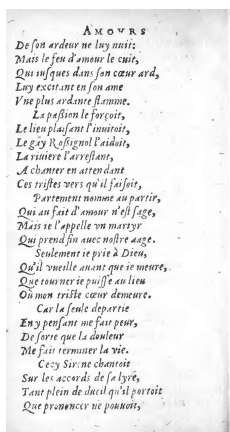 AMOVRS
De ſon ardeur ne luy nuit:
Mais le feu d'amour le cuit,
Qui iuſques dans ſon cœur ard,
Luy excitant en ſon ame
Vne plus ardante flamme.
La paſſion le forçoit,
Le lieu plaiſant l'inuitoit,
Le gay Roßignol l'aidoit,
La riuiere l'arreſtant,
A chanter en attendant
Ces triſtes vers qu'il faiſoit,
Partement nomme au partir,
Qui au fait d'amour n'eſt ſage,
Mais ie l'appelle vn martyr
Qui prend fin auec noſtre aage.
Seulement ie prie à Dieu,
Qu'il vueille auant que ie meure,
Que tourner ie puiſſe au lieu
Où mon triſte cœur demeure.
Car la ſeule departie
En y penſant me fait peur,
De ſorte que la douleur
Me fait terminer la vie.
Cecy Sirene chantoit
Sur les accords de ſa lyre,
Tant plein de dueil qu'il portoit
Que prononcer ne pouuoit,